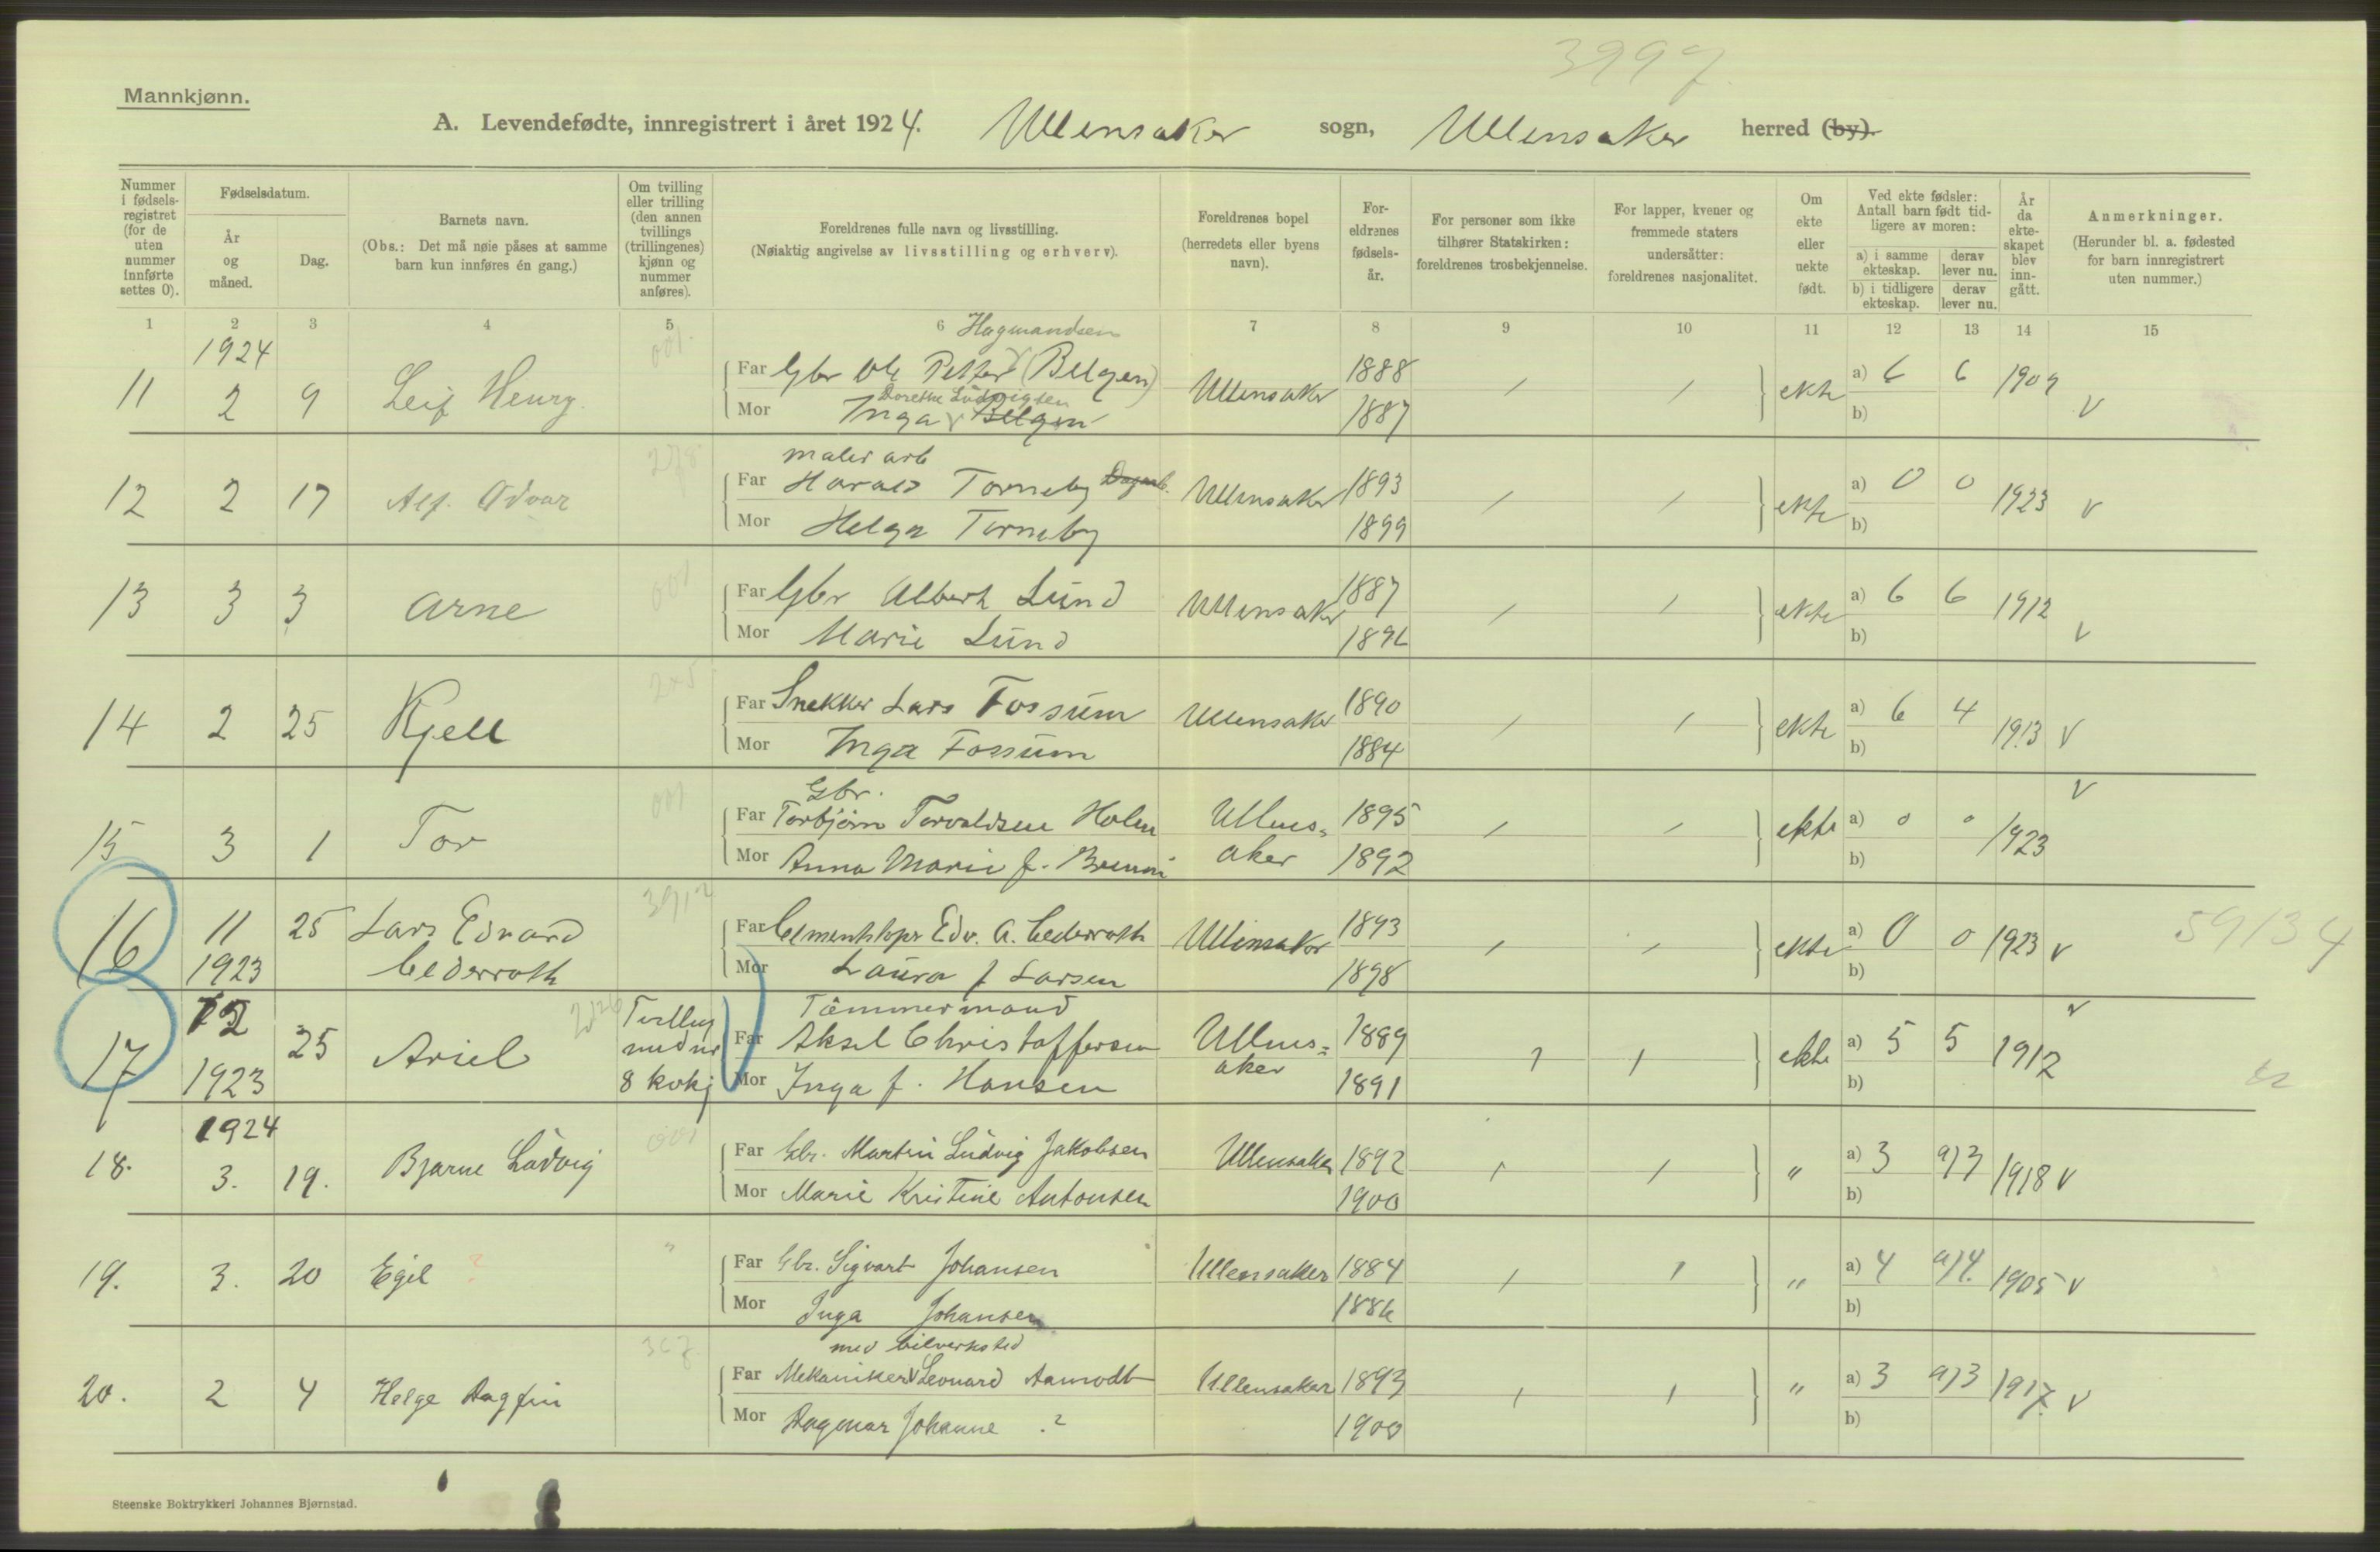 3997
Mannkjønn.
A. Levendefødte, innregistrert i året 1924. Ullensaker sogn, Ullensaker herred (by).
Nummer i fødsels-registret (for de uten nummer innførte settes 0).
Fødselsdatum.
År og måned.
Dag.
Barnets navn.
(Obs.: Det må nøie påses at samme barn kun innføres én gang.)
Om tvilling eller trilling (den annen tvillings (trillingenes) kjønn og nummer anføres).
Foreldrenes fulle navn og livsstilling.
(Nøiaktig angivelse av livsstilling og erhverv).
Foreldrenes bopel (herredets eller byens navn).
For-eldrenes fødsels-år.
For personer som ikke tilhører Statskirken: foreldrenes trosbekjennelse.
For lapper, kvener og fremmede staters undersåtter: foreldrenes nasjonalitet.
Om ekte eller uekte født.
Ved ekte fødsler: Antall barn født tid-ligere av moren:
a) i samme ekteskap.
derav lever nu.
b) i tidligere ekteskap.
derav lever nu.
År da ekte-skapet blev inn-gått.
Anmerkninger.
(Herunder bl. a. fødested for barn innregistrert uten nummer.)
1 2 3 4 5 6 7 8 9 10 11 12 13 14 15
1924 001 Hagmandsen
11 2 9 Leif Henry. Far Gbr Ole Petter (Belgen) Ullensaker 1888 / / ekte a) 6 6 1909 v
Dorethe Ludvigsen
Mor Inga Belgen 1887 b)
278 maler arb
12 2 17 Alf. Odvar Far Harald Torneby Dagarb. Ullensaker 1893 / / ekte a) 0 0 1923 v
Mor Helga Torneby 1899 b)
001
13 3 3 Arne Far Gbr Albert Lund Ullensaker 1887 / / ekte a) 6 6 1912 v
Mor Marie Lund 1892 b)
205
14 2 25 Kjell Far Snekker Lars Fossum Ullensaker 1890 / / ekte a) 6 4 1913 v
Mor Inga Fossum 1884 b)
001 Gbr. v
15 3 1 Tor Far Torbjørn Torvaldsen Holm Ullens- 1895 / / ekte a) 0 0 1923
Mor Anna Marie f. aker 1892 b)
16 11 25 Lars Edvard Far Edv. A. Cederroth Ullensaker 1893 / / ekte a) 0 0 1923 v 59134
1923 Cederroth Mor Laura f Larsen 1898 b)
12 Tvilling Tömmermand v
17 25 Ariel med nr Far Aksel Christoffersen Ullens- 1889 / / ekte a) 5 5 1912
1923 8 kvkj Mor Inga f. Hansen aker 1891 b)
1924 001
18. 3. 19. Bjarne Ludvig Far Gbr. Martin Ludvig Jakobsen Ullensaker 1892 / / " a) 3 a) 3 1918 v
Mor Marie Kristine Antonsen 1900 b)
19. 3. 20 Egil ? " Far Gbr. Sigvart Johansen Ullensaker 1884 / / " a) 4 a) 4. 1905 v
Mor Inga Johansen 1886 b)
307 med bilverksted
20. 2 4 Helge Dagfin Far Mekaniker Leonard Aamodt Ullensaker 1893 / / " a) 3 a) 3 1917. v
Mor Dagmar Johanne .? 1900 b)
Steenske Boktrykkeri Johannes Bjørnstad.